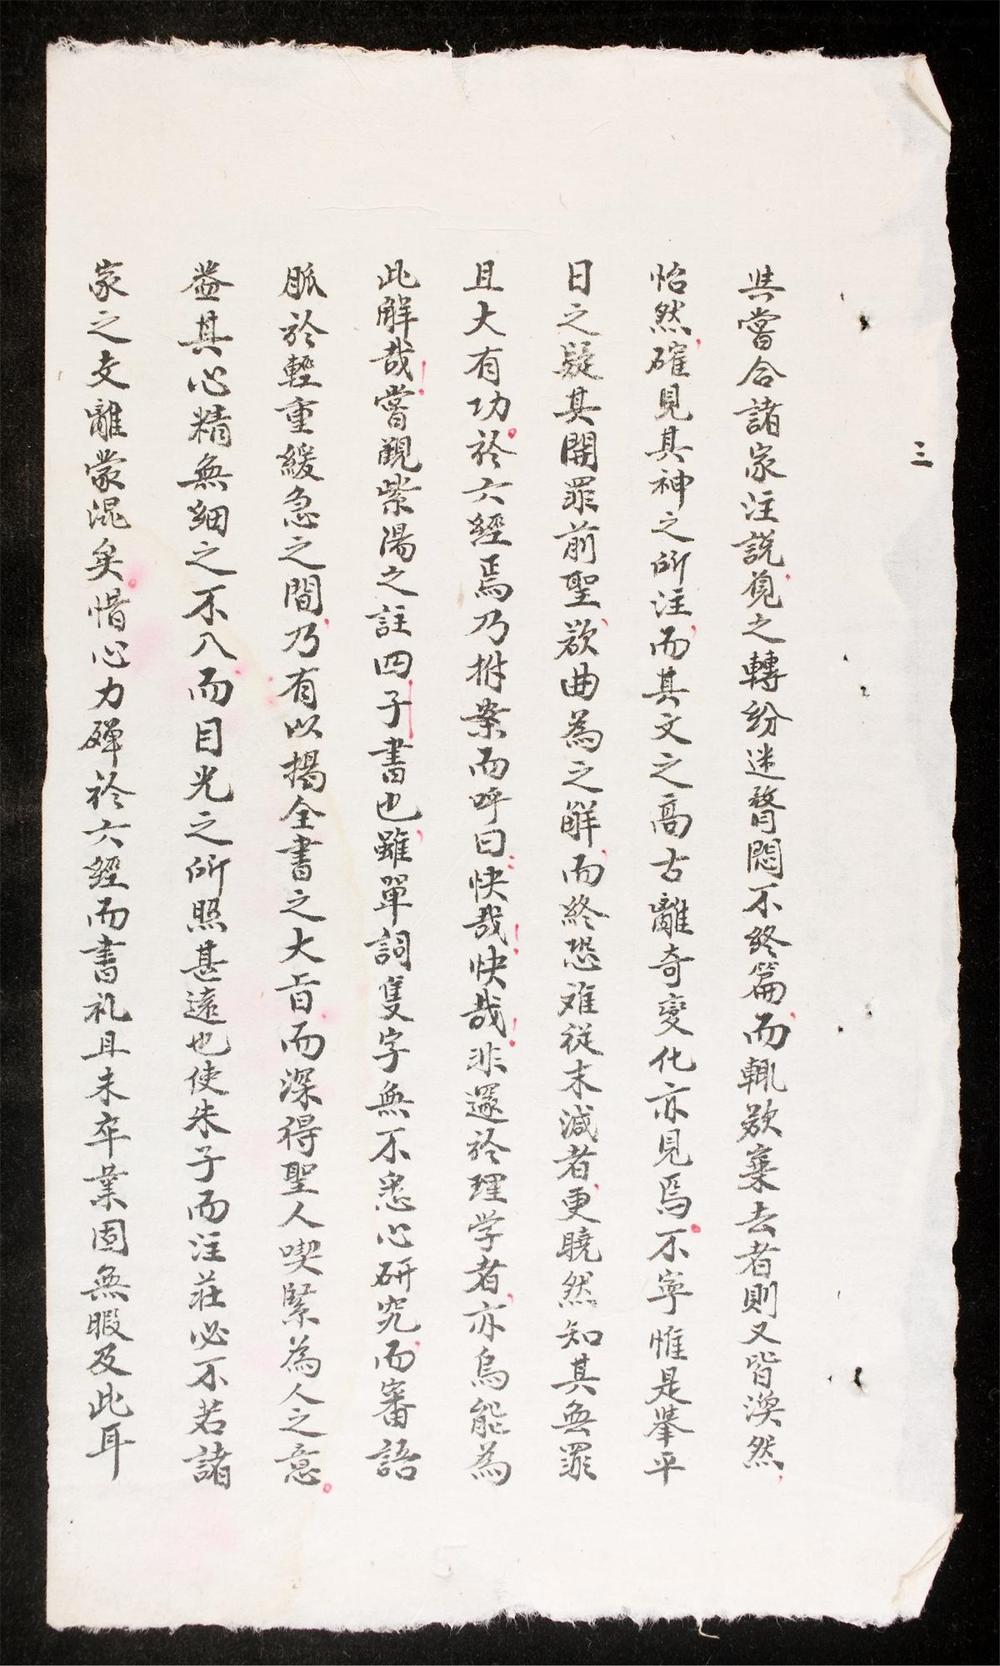 三
其嘗合諸家注説覓之轉紛迷瞀悶不終篇而輒欲棄去者則又皆渙然
怡然確見其神之所注而其文之高古離奇變化亦見焉不寧惟是舉平
日之疑其開罪前聖欲曲為之解而終恐难從末減者更曉然知其無罪
且大有功於六經焉乃拊案而呼曰快哉快哉非邃於理学者亦烏能為
此解哉嘗觀紫湯之註四子書也雖單詞隻字無不悉心研究而審語
脈於輕重緩急之間乃有以揭全書之大旨而深得聖人喫緊為人之意
葢其心精無細之不入而目光之所照甚遠也使朱子而注莊必不若諸
家之支離蒙混矣惜心力殫於六經而書礼且未卒業固無暇及此耳